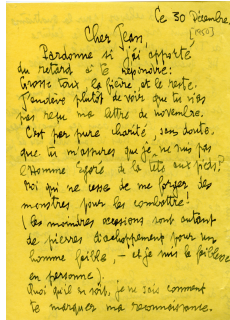 Ce 30 Décembre
[1950]
Cher Jean,
Pardonne si j'ai apporté
du retard à te répondre:
Grosse toux, la fièvre, et le reste.
J'enrage plutôt de voir que tu n'as
pas reçu ma lettre de novembre.
C'est par pure charité, sans doute,
que tu m'assures que je ne suis pas
l'Homme égaré de la tête aux pieds?
Moi qui ne cesse de me forger des
monstres pour les combattre!
(Les moindres occasions sont autant
de pierres d'achoppement pour un
homme faible, — et je suis la faiblesse
en personne).
Quoi qu'il en soit, je ne sais comment
te marquer ma reconnaissance.